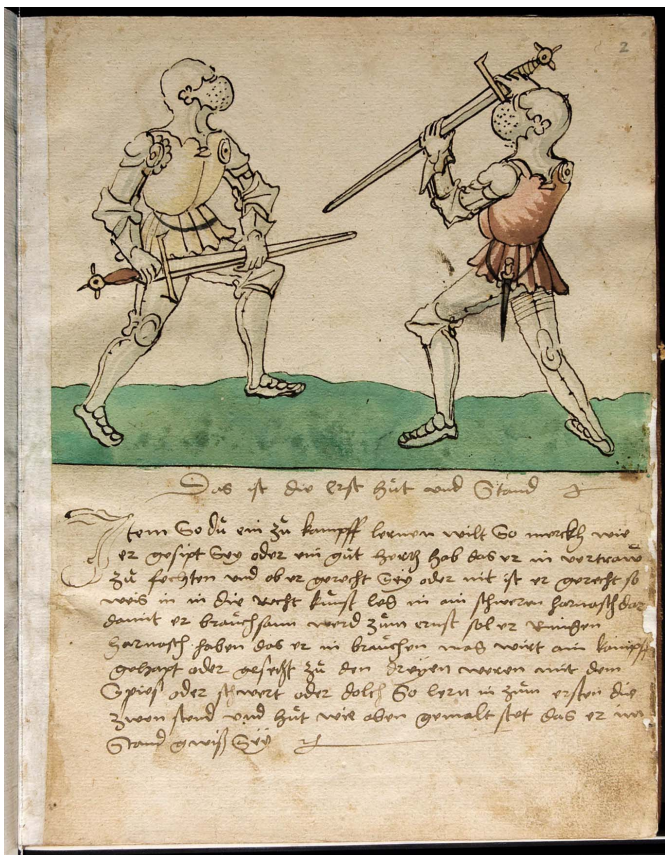 2
Das ist die erst hůt und Stand
Item So du ein zů kampff lernen wilt So merckh wie
er gesipt Seÿ oder ein gůt hertz hab das er in vertraw
zů fechten und ob er gerecht Seÿ oder nit ist er gerecht so
weis in in die recht kunst las in ain schweren harnasch
damit er brauchsam werd zum ernst sol er Ringen
harnasch haben das er in brauchen mas wirt ain kampff
gehapt oder gesetzt zů den dreÿen weren mit dem
Spies oder schwert oder dolch So lern in zům ersten die
zwen stend und hůt wie oben gemalt stet das er im
Stand gwiß Seÿ